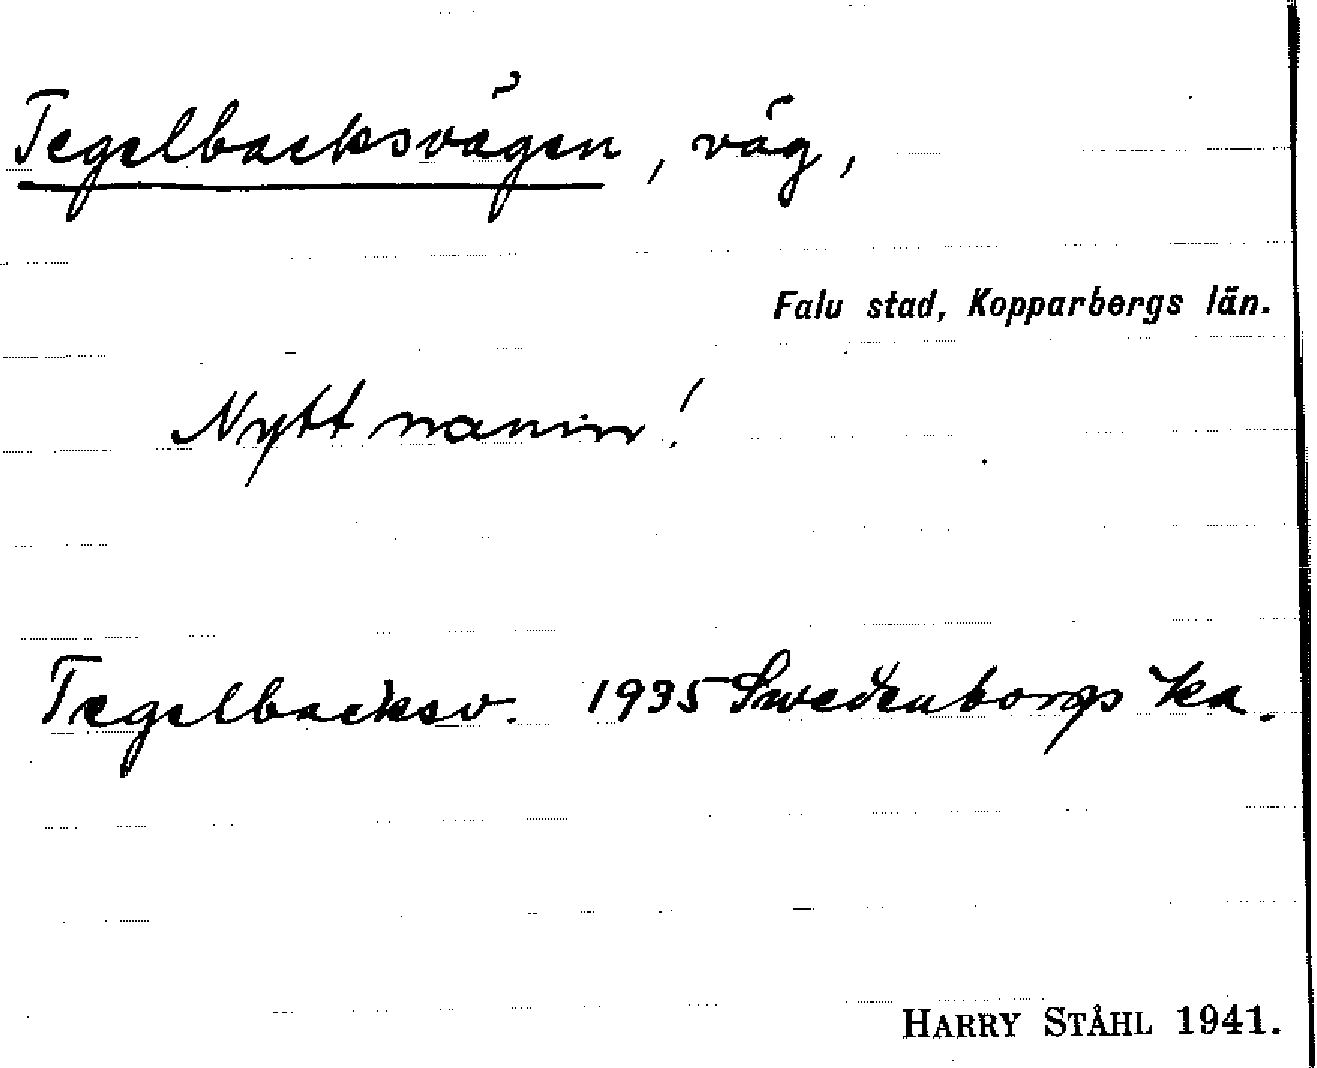 Tegelbacksvägen, väg,
Falu stad, Kopparbergs län.
Nytt namn!
Tegelbacksv. 1935 Swedenborgs ka.
HARRY STÅHL 1941.